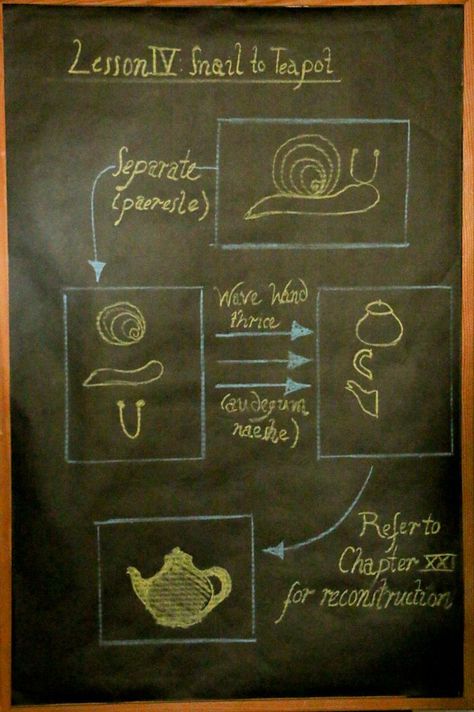 Lesson IV: Snail to Teapot
Separate
(paeresle)
Wave Wand
thrice
(audegum
naeshe)
Refer to
Chapter XXI
for reconstruction